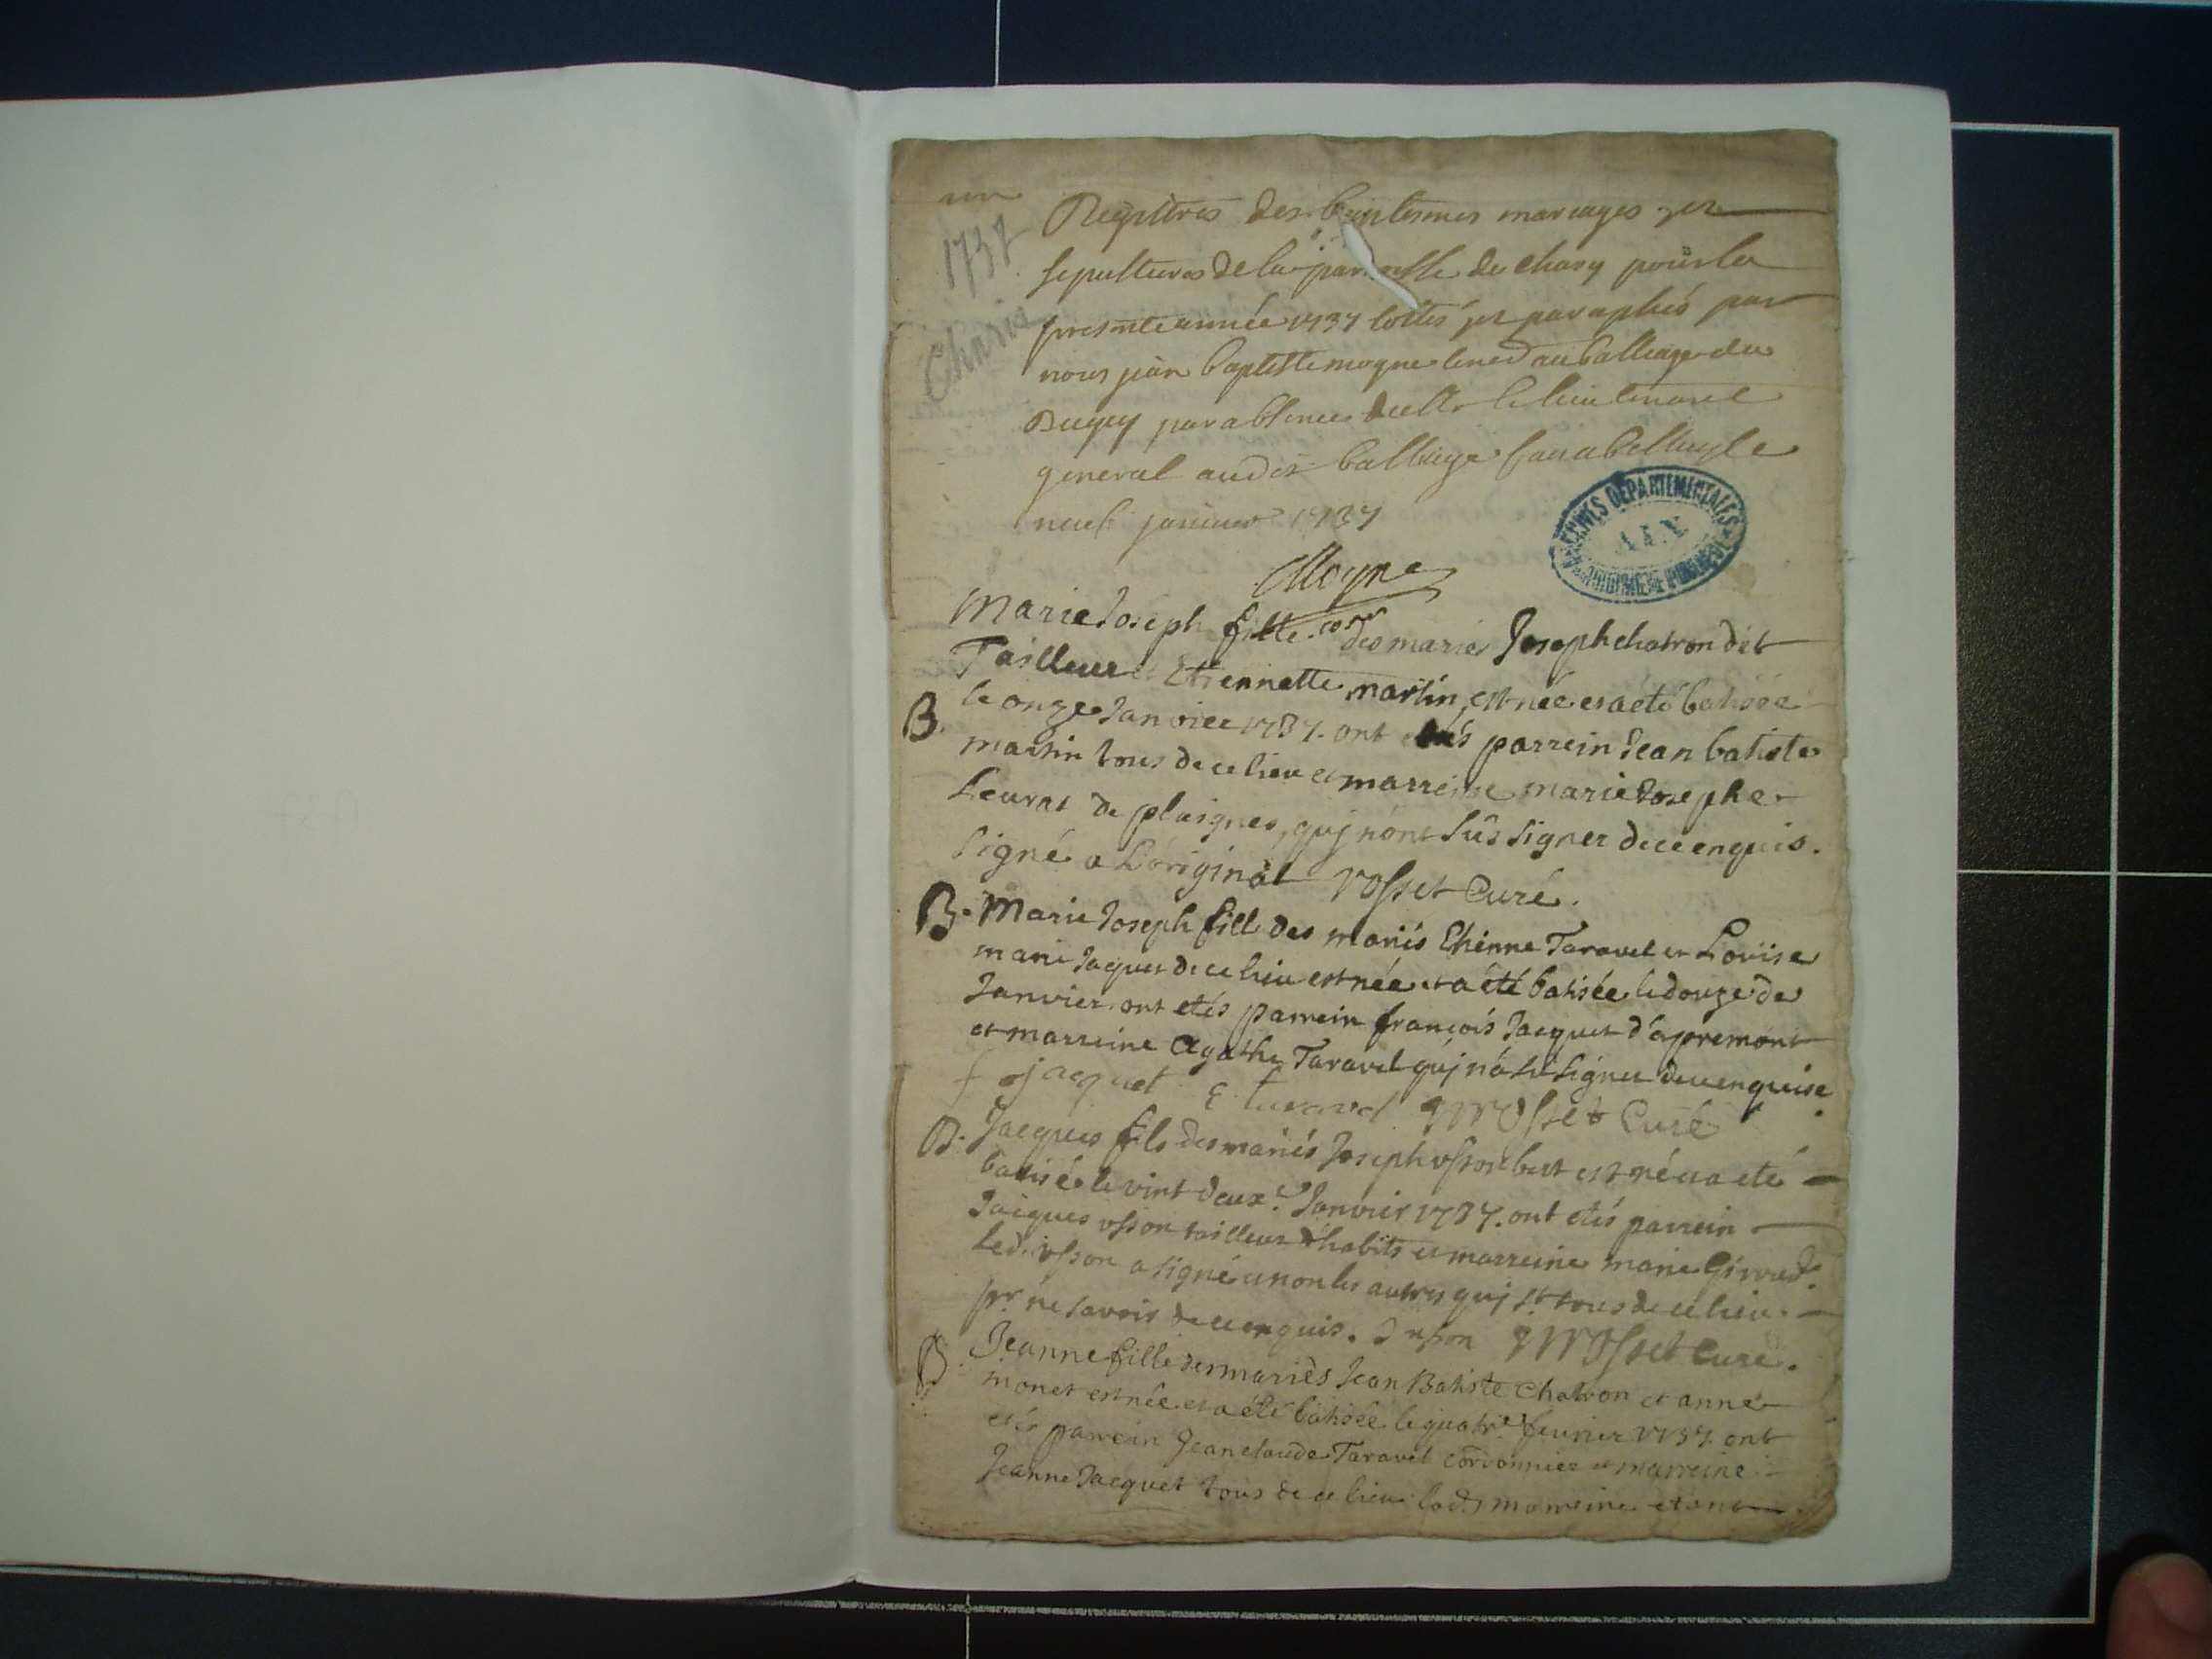 un
1737
Charix
Registres des baptismes mariages et
sepultures de la parroisse de chary pour la
presente année 1737 cottés et paraphés par
nous jean baptiste moyne au balliage du
Bugey par absence de le lieutenant
general audit balliage fait a belley le
neuf janvier 1737
Moyne
ARCHIVES DÉPARTEMENTALES
AIN
Marie Joseph fille des mariés Joseph chatron dit
Tailleur et Etiennette martin, est née et a été batisée
B. le onze Janvier 1737. ont etés parrein Jean batiste
martin tous de ce lieu et marreine marie Josephe
Leurat de plaignes, quj nont sûs signer de ce enquis.
signé a L'original rosset Curé.
B. Marie Joseph fille des mariés Ethienne Taravel et Loüise
marie Jaquet de ce lieu est née et a été batisée le douze de
Janvier. ont etés parrein françois Jacquet d'apremont
et marreine agathe Taravel quj n'a sû signer de ce enquise
f jacquet E. taravel rosset Curé
B. Jacques fils des mariés Joseph usson best est né et a eté
batisé le vint deux.e Janvier 1737. ont etés parrein
Jacques usson tailleur d'habits et marreine marie Girard.
Led. usson a signé et non les autres quj st tous de ce lieu.
pr. ne savoir de ce enquis. J usson rosset Curé.
B. Jeanne fille des mariés Jean Batiste Chatron et anne
monet est née et a été batisée le quatr.e fevrier 1737. ont
etés parrein Jean claude Taravel cordonnier et marreine
Jeanne Jacquet tous de ce lieu lad. marreine etant